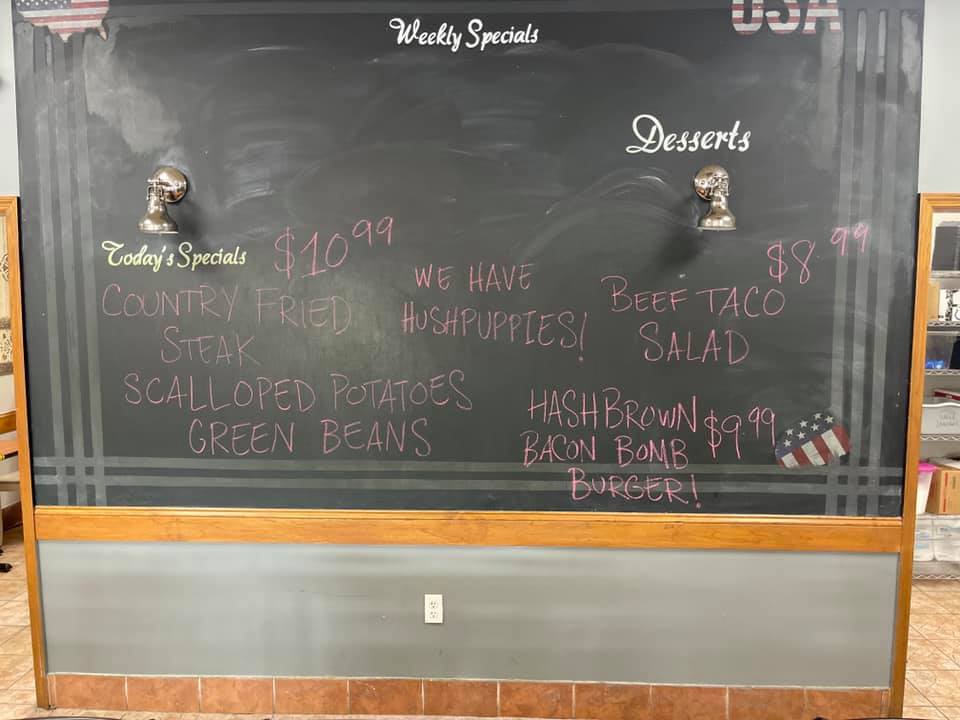 USA
Weekly Specials
Desserts
Today's Specials $10 99
COUNTRY FRIED
STEAK
SCALLOPED POTATOES
GREEN BEANS
WE HAVE
HUSHPUPPIES!
$8 99
BEEF TACO
SALAD
HASHBROWN $9.99
BACON BOMB
BURGER!